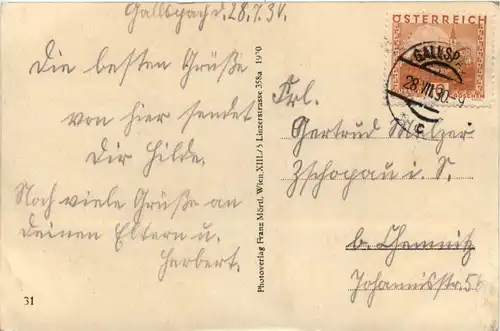 Gallspach d. 28.7.3
Die besten Grüße
von hier sendet
Dir Hilde.
Noch viele Grüße an
Deinen Eltern u.
Herbert.
31
Photoverlag Franz Mörtl, Wien XIII./5 Linzerstrasse 358a 1930
ÖSTERREICH
GALLSP
28.VII.30.-9
c
Frl.
Gertrud Melzer
Zschopau i. S.
b. Chemnitz
Johannisstr.